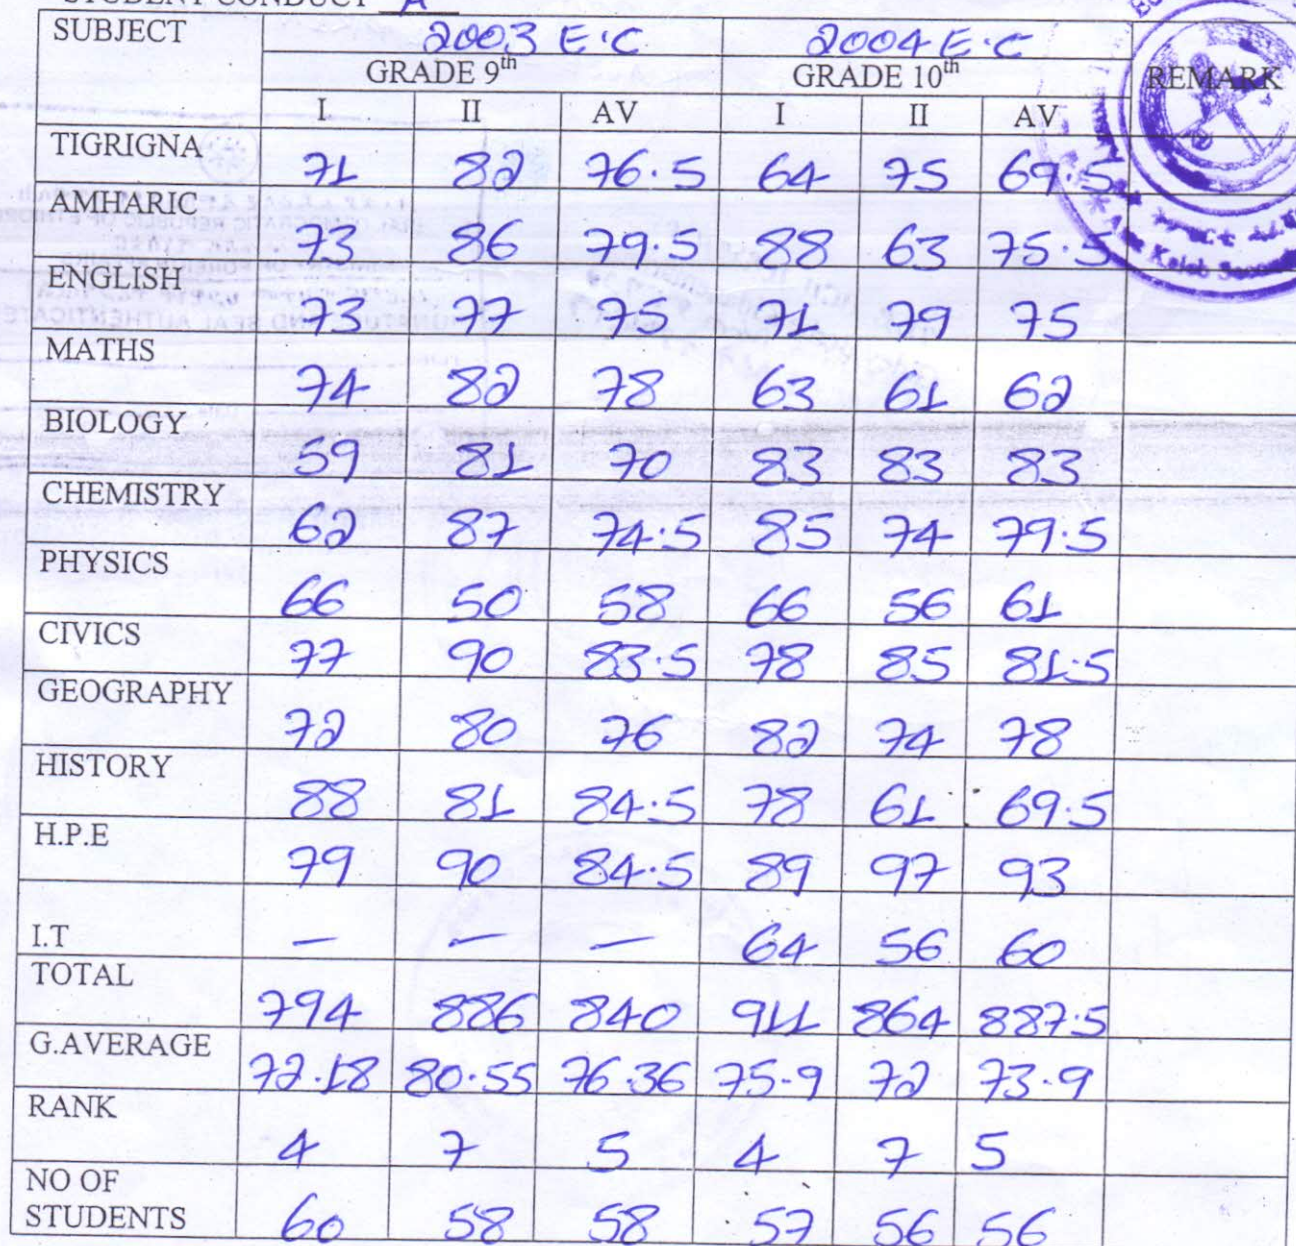 STUDENT CONDUCT A
SUBJECT 2003 E.C 2004 E.C REMARK
GRADE 9th GRADE 10th
I II AV I II AV
TIGRIGNA 71 82 76.5 64 75 69.5
AMHARIC 73 86 79.5 88 63 75.5
ENGLISH 73 77 75 71 79 75
MATHS 74 82 78 63 61 62
BIOLOGY 59 81 70 83 83 83
CHEMISTRY 62 87 74.5 85 74 79.5
PHYSICS 66 50 58 66 56 61
CIVICS 77 90 83.5 78 85 81.5
GEOGRAPHY 72 80 76 82 74 78
HISTORY 88 81 84.5 78 61 69.5
H.P.E 79 90 84.5 89 97 93
I.T — — — 64 56 60
TOTAL 794 886 840 911 864 887.5
G.AVERAGE 72.18 80.55 76.36 75.9 72 73.9
RANK 4 7 5 4 7 5
NO OF
STUDENTS 60 58 58 57 56 56
Kaleb